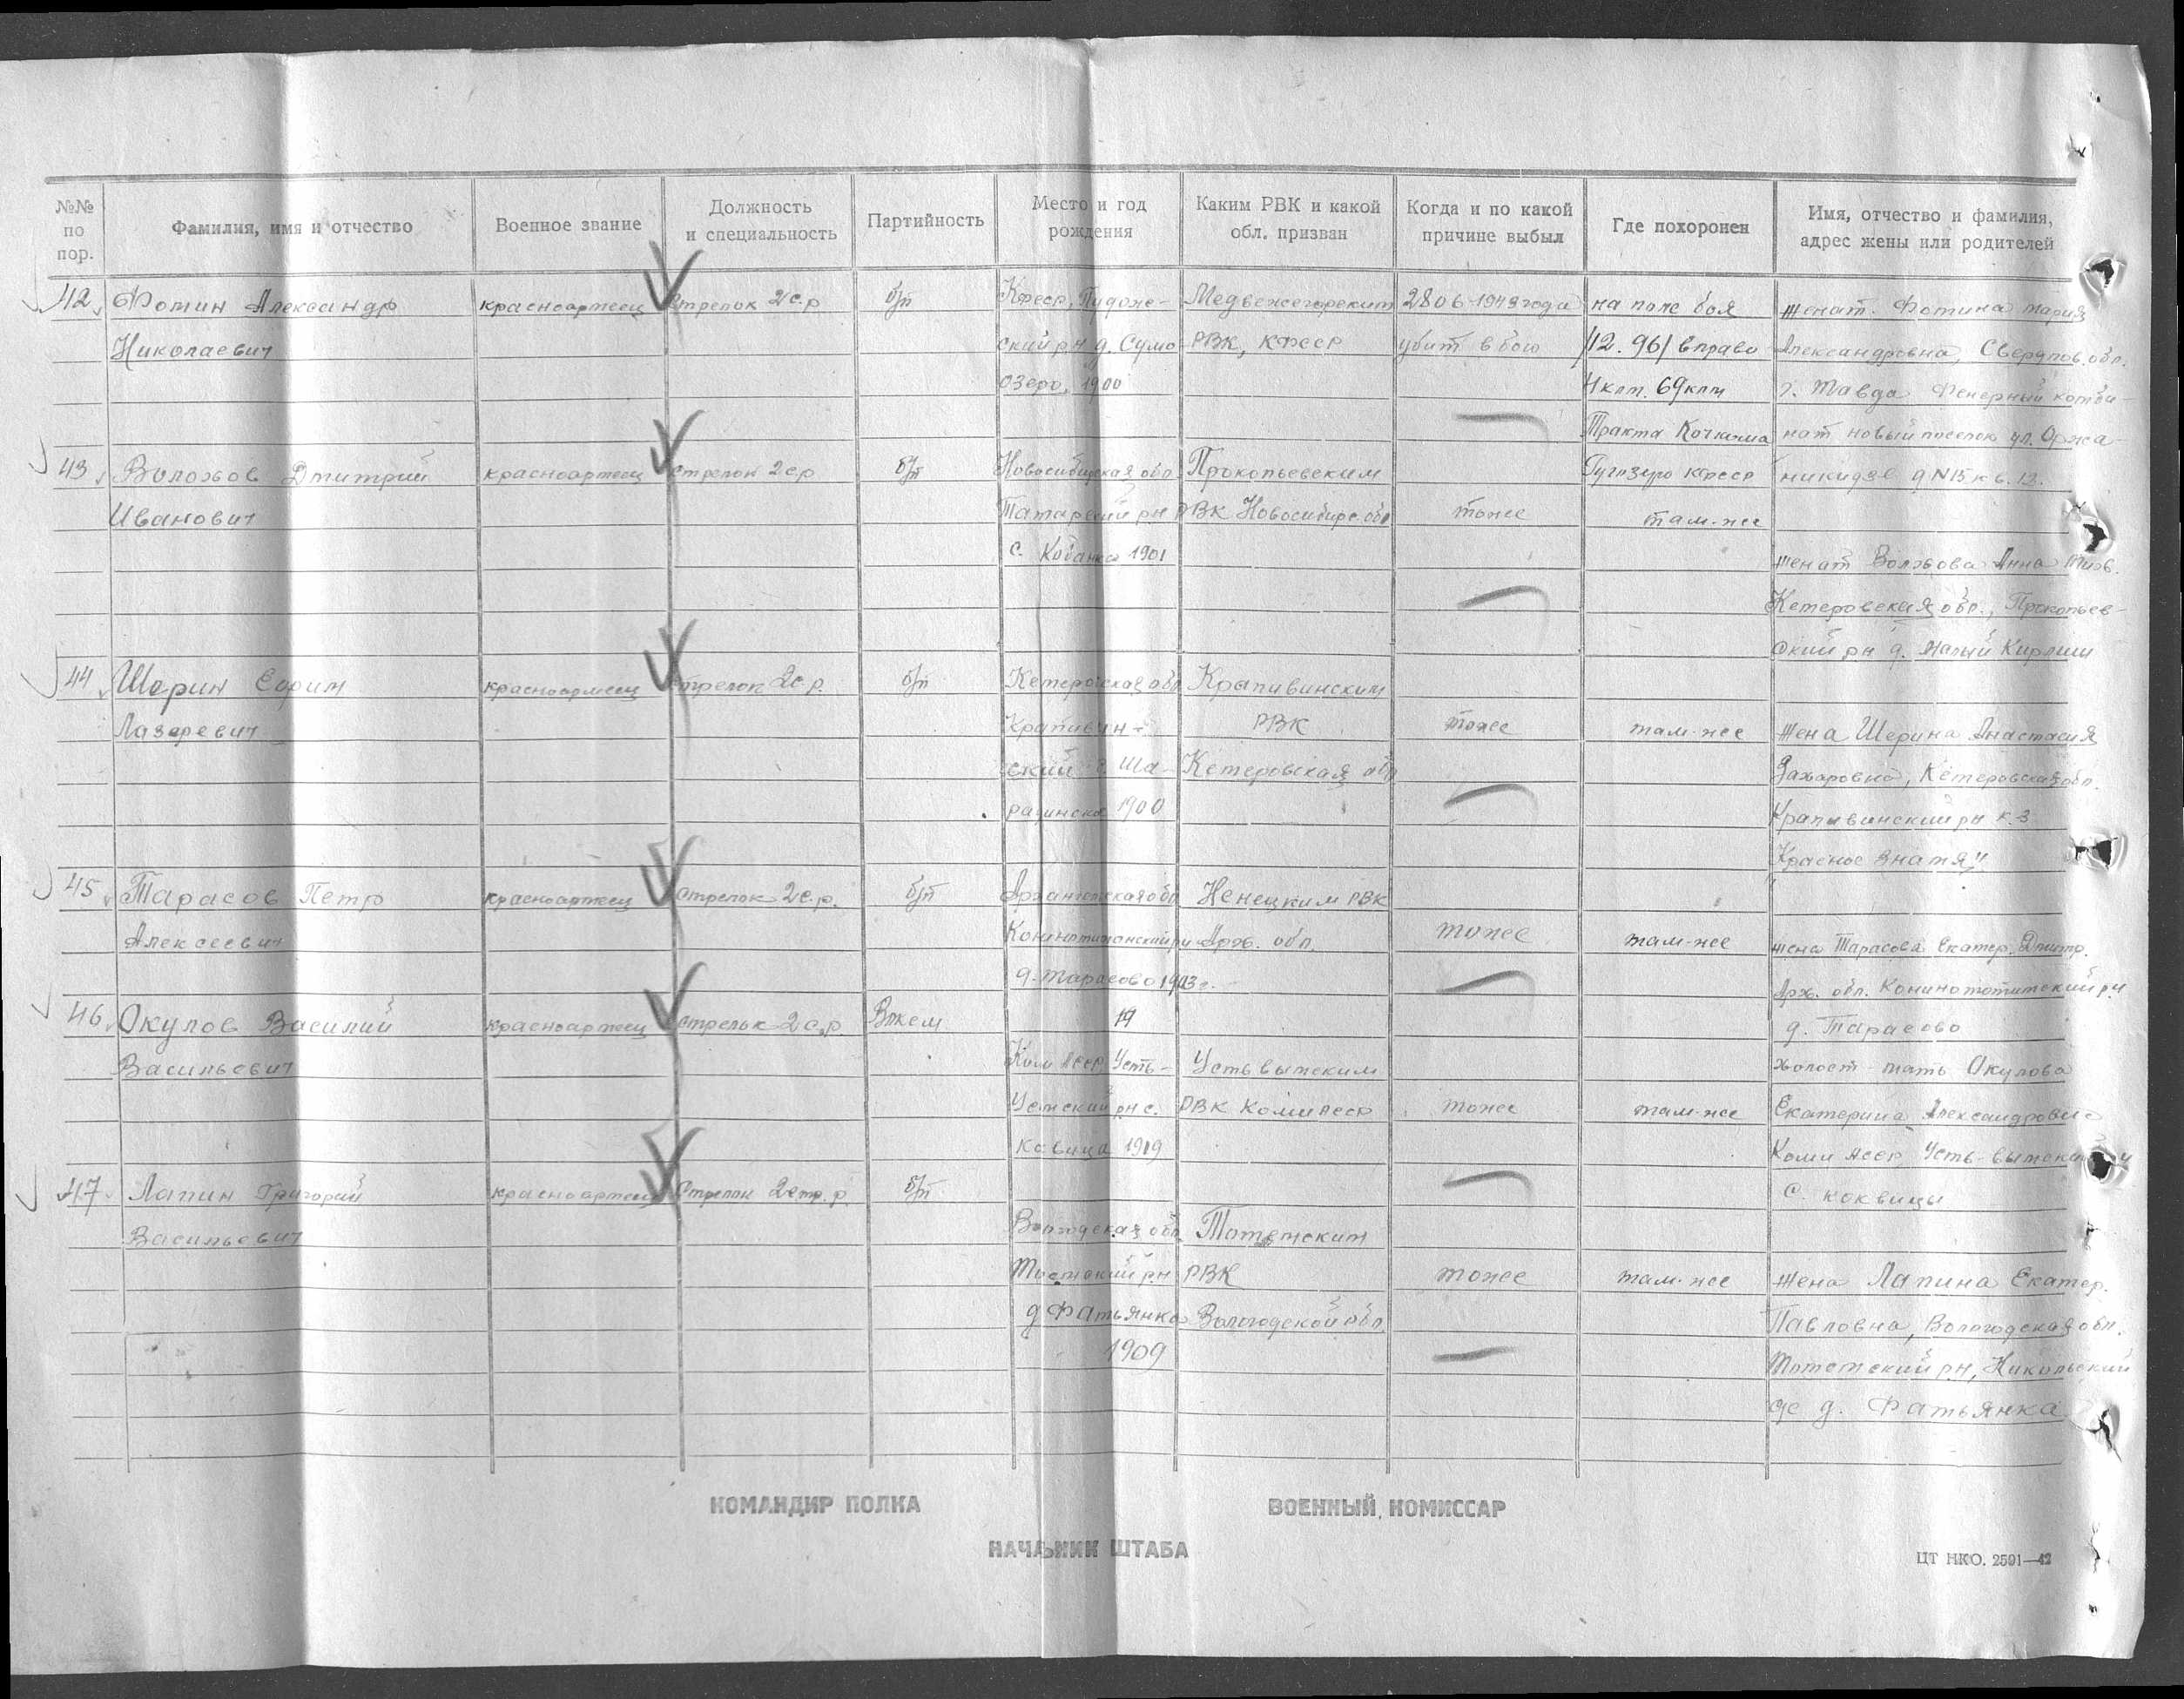 №№ по пор.
Фамилия, имя и отчество
Военное звание
Должность и специальность
Партийность
Место и год рождения
Каким РВК и какой обл. призван
Когда и по какой причине выбыл
Где похоронен
Имя, отчество и фамилия, адрес жены или родителей
42 Фомин Александр
Николаевич
красноармеец
стрелок 2 с.р
б/п
Кфсср, Пудож-
ский р.н д. Сумо
озеро, 1900
Медвежегорским
РВК, КФССР
28 06-1943 года
убит в бою
на поле боя
/12. 96/ вправо
4 клм. 69 клм
Тракта Кочкома
Ругозеро КФССР
женат. Фомина Мария
Александровна, Свердлов. обл.
г. Тавда Фанерный комби-
нат новый поселок ул. Орджа-
никидзе д N 15 кв. 13.
43 Волохов Дмитрий
Иванович
красноармеец
стрелок 2 ср
б/п
Новосибирская обл
Татарский р.н
с. Кабанка 1901
Прокопьевским
РВК Новосибирс. обл
тоже
там-же
женат Волхова Анна
Кемеровская обл., Прокопьев-
ский рн д. Малый
44 Шерин Ефим
Лазаревич
красноармеец
стрелок 2 с.р.
б/п
Кемеровская обл
Крапивин-
ский с. Ша-
1900
Крапивинским
РВК
Кемеровская обл
тоже
там-же
жена Шерина Анастасия
Захаровна, Кемеровская обл.
Крапивинский рн к.з
Красное Знамя"
45 Тарасов Петр
Алексеевич
красноармеец
стрелок 2 с.р.
б/п
Архангельская обл
д. Тарасово 1903 г.
Ненецким РВК
Арх. обл.
тоже
там-же
жена Тарасова Екатер. Дмитр.
Арх. обл.
д. Тарасово
46 Окулов Василий
Васильевич
красноармеец
стрелок 2 с.р
19
Коми Асср Усть-
рн с.
1919
Устьвымским
РВК Коми АССР
тоже
там-же
холост - мать Окулова
Екатерина Александровна
Коми АССР, Усть-вымский
с. коквицы
47 Лапин Григорий
Васильевич
красноармеец
Стрелок 2 стр. р.
б/п
Вологодская обл.
р.н
д Фатьянка
1909
Тотемским
РВК
Вологодской обл.
тоже
там-же
жена Лапина Екатер.
Павловна, Вологодская обл.
Тотемский р.н, Никольский
д. Фатьянка
КОМАНДИР ПОЛКА
ВОЕННЫЙ КОМИССАР
НАЧАЛЬНИК ШТАБА
ЦТ НКО. 2591—42